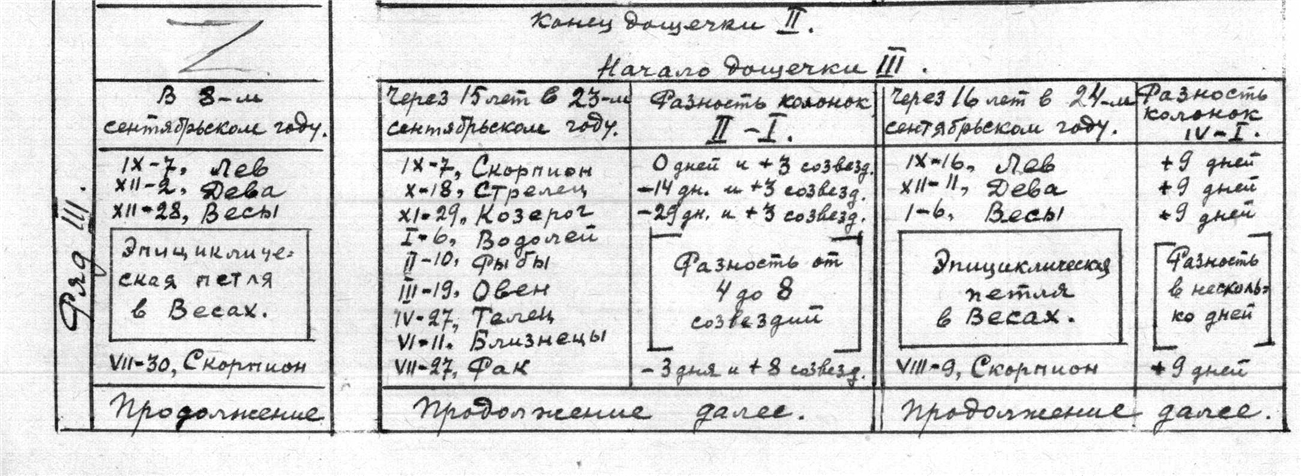 Конец дощечки II.
Начало дощечки III.
Ряд III.
В 8-м
сентябрьском году.
IX-7, Лев
XII-2, Дева
XII-28, Весы
Эпицикличе-
ская петля
в Весах.
VII-30, Скорпион
Продолжение
Через 15 лет в 23-м
сентябрьском году.
IX-7, Скорпион
X-18, Стрелец
XI-29, Козерог
I-6, Водолей
II-10, Рыбы
III-19, Овен
IV-27, Телец
VI-11. Близнецы
VII-27, Рак
Разность колонок
II-I.
0 дней и +3 созвезд.
-14 дн. и +3 созвезд.
-29 дн. и +3 созвезд.
Разность от
4 до 8
созвездий
-3 дня и +8 созвезд.
Продолжение далее.
Через 16 лет в 24-м
сентябрьском году.
IX-16, Лев
XII-11, Дева
I-6, Весы
Эпициклическая
петля
в Весах.
VIII-9, Скорпион
Разность
колонок
IV-I.
+9 дней
+9 дней
+9 дней
Разность
в несколь-
ко дней
+9 дней
Продолжение далее.